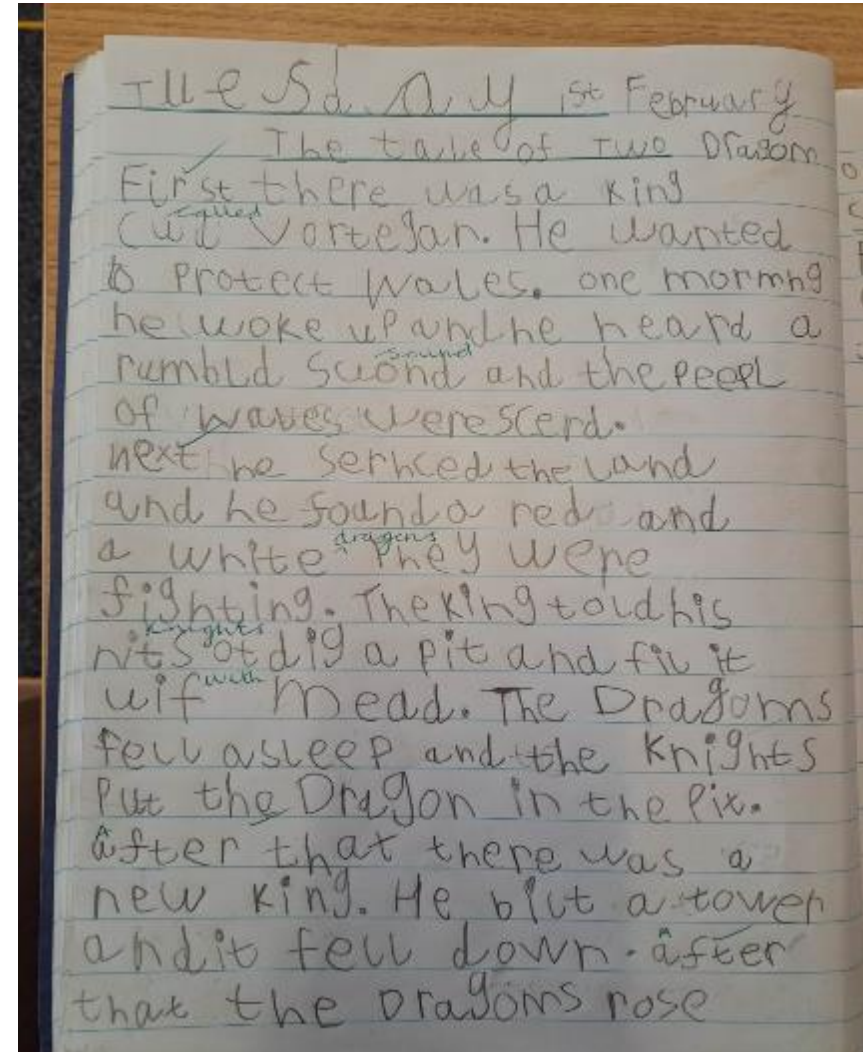 Tuesday 1st February
The tale of Two Dragom
First there was a King
called
Cull Vortegan. He wanted
to Protect Wales. one morning
he woke up and he heard a
sound
rumbld Suond and the peepl
of waves were scerd.
next he serhced the land
and he found a red and
dragons
a white ^ they were
fighting. The King told his
knights
nits ot dig a pit and fil it
with
wif mead. The Dragoms
fell asleep and the Knights
Put the Dragon in the Pix.
after that there was a
new King. He bilt a tower
and it fell down. after
that the Dragoms rose